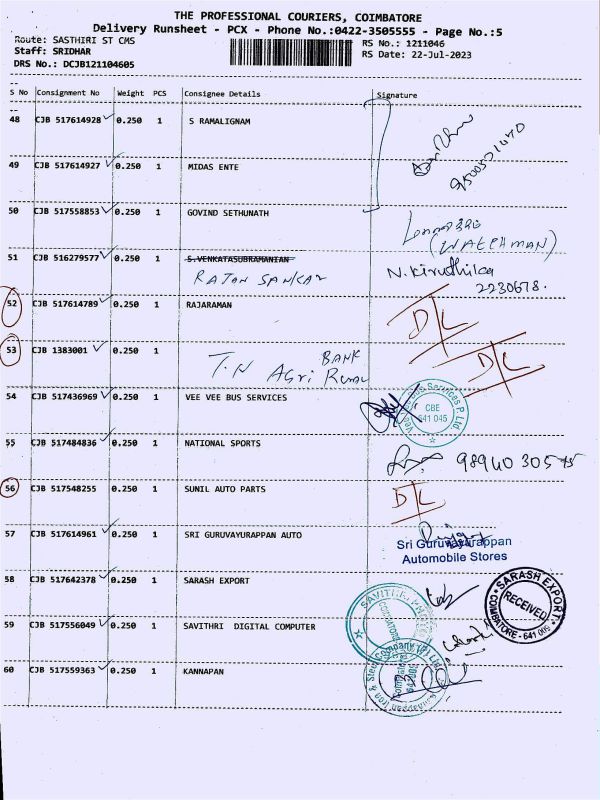 THE PROFESSIONAL COURIERS, COIMBATORE
Delivery Runsheet - PCX - Phone No.:0422-3505555 - Page No.:5
Route: SASTHIRI ST CMS
Staff: SRIDHAR
DRS No.: DCJB121104605
RS No.: 1211046
RS Date: 22-Jul-2023
S No Consignment No Weight PCS Consignee Details Signature
48 CJB 517614928 0.250 1 S RAMALIGNAM
49 CJB 517614927 0.250 1 MIDAS ENTE
50 CJB 517558853 0.250 1 GOVIND SETHUNATH
(WATCHMAN)
51 CJB 516279577 0.250 1 S.VENKATASUBRAMANIAN
RATAN SANKAR
N. Kiruthika
2230678.
52 CJB 517614789 0.250 1 RAJARAMAN
D/L
53 CJB 1383001 0.250 1
T.N Agri Rural BANK
D/L
54 CJB 517436969 0.250 1 VEE VEE BUS SERVICES
Vee Vee Bus Services P. Ltd.
CBE
641 045
55 CJB 517484836 0.250 1 NATIONAL SPORTS
98940 30575
56 CJB 517548255 0.250 1 SUNIL AUTO PARTS
D/L
57 CJB 517614961 0.250 1 SRI GURUVAYURAPPAN AUTO
Sri Guruvayurappan
Automobile Stores
58 CJB 517642378 0.250 1 SARASH EXPORT
SARASH EXPORT
RECEIVED
COIMBATORE - 641 005
59 CJB 517556049 0.250 1 SAVITHRI DIGITAL COMPUTER
SAVITHRI
60 CJB 517559363 0.250 1 KANNAPAN